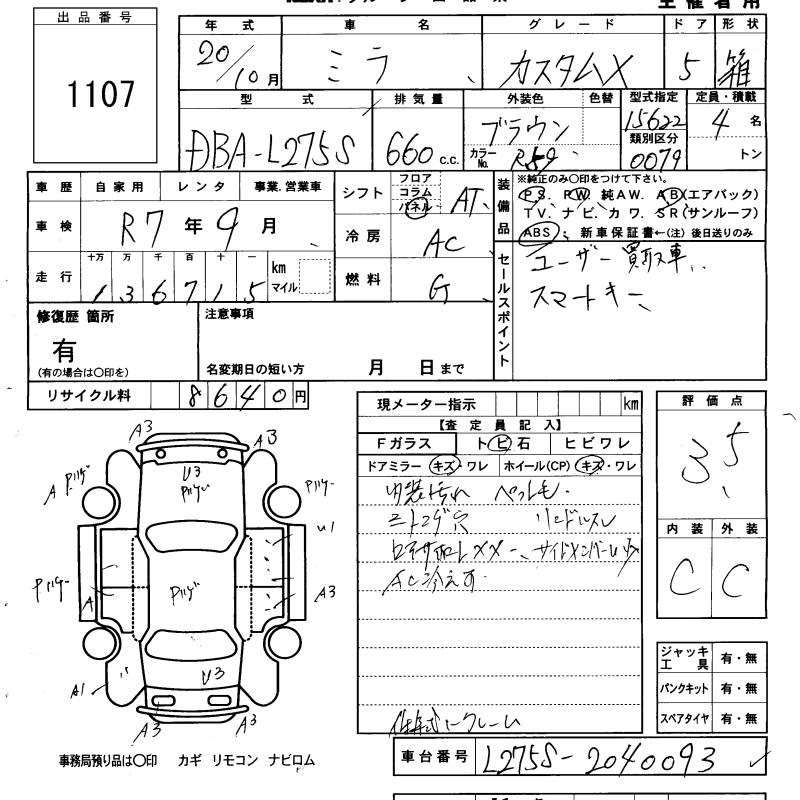 主催者用
出品番号
1107
年式 車名 グレード ドア 形状
20/10月 ミラ カスタムX 5 箱
型式 排気量 外装色 色替 型式指定 定員・積載
DBA-L275S 660c.c. ブラウン 15622 4名
カラーNo. R59 類別区分 0079 トン
車歴 自家用 レンタ 事業、営業車
車検 R7年9月
走行 十万 万 千 百 十 一 km マイル
136715
シフト フロア コラム パネル AT
冷房 AC
燃料 G
装備品
※純正のみ〇印をつけて下さい。
PS. PW. 純AW. AB(エアバック)
TV. ナビ. カワ. SR(サンルーフ)
ABS 新車保証書←(注)後日送りのみ
セールスポイント
ユーザー買取車
スマートキー
修復歴 箇所
有
(有の場合は〇印を)
注意事項
名変期日の短い方 月 日まで
リサイクル料 8640円
現メーター指示 km
【査定員記入】
Fガラス トビ石 ヒビワレ
ドアミラー キズ・ワレ ホイール(CP) キズ・ワレ
内装汚れ ペット毛
ニートコゲ穴
AC冷えず
評価点
3.5
内装 外装
C C
ジャッキ工具 有・無
パンクキット 有・無
スペアタイヤ 有・無
A3 A3
U3
A
U1
A3
A
A1
U3
A3 A3
事務局預り品は〇印 カギ リモコン ナビロム
車台番号 L275S-2040093